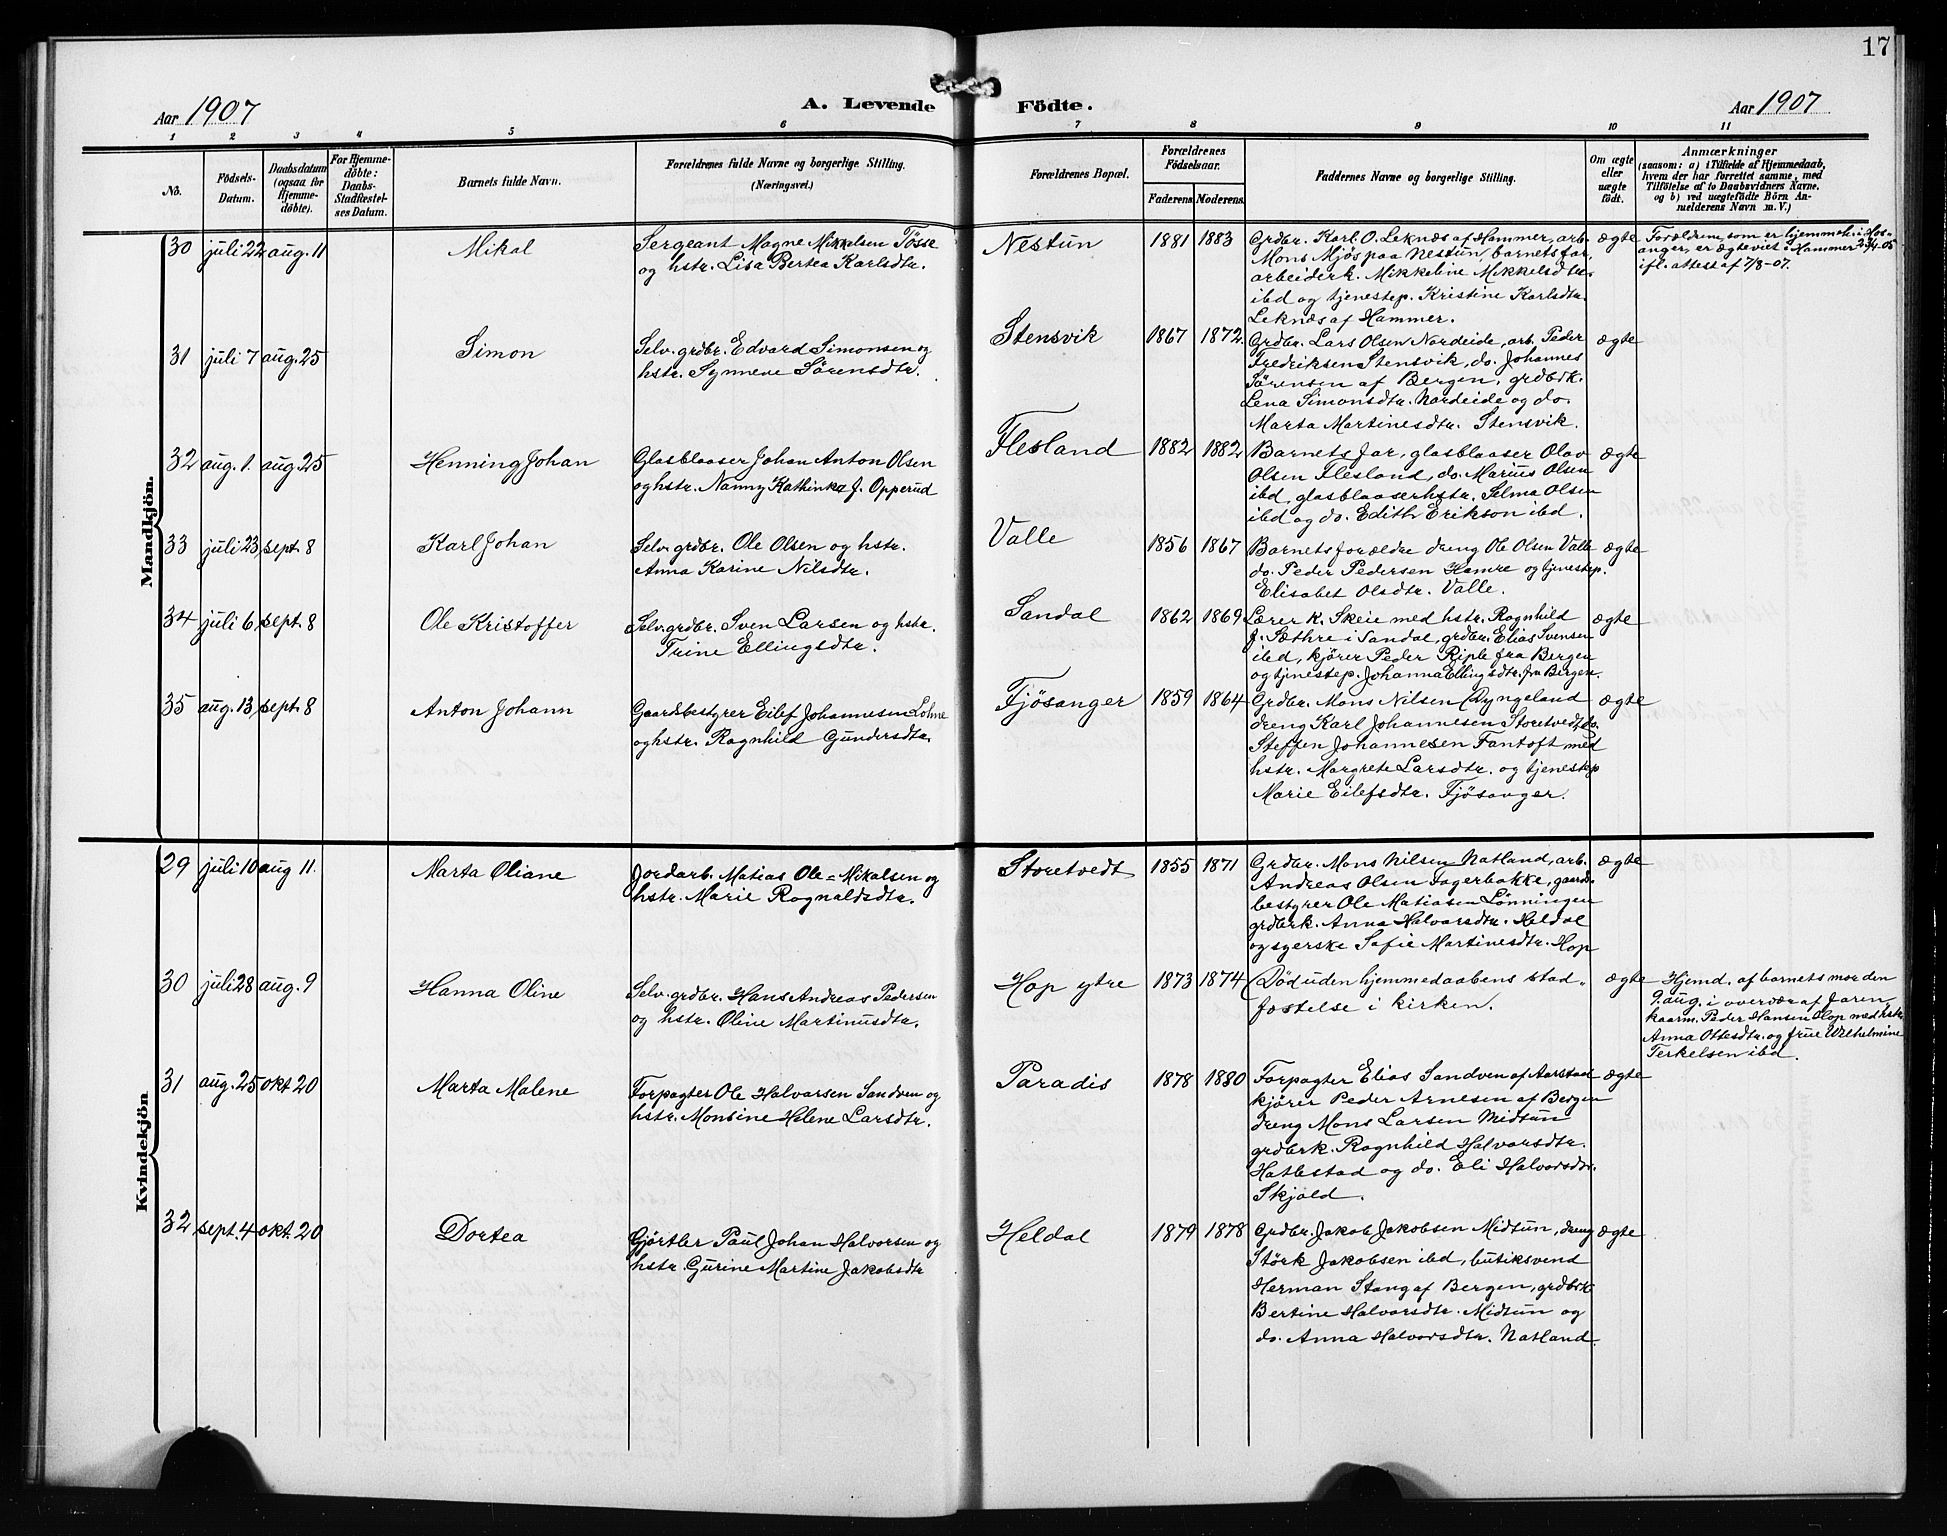 17
Aar 1907
A. Levende Födte.
Aar 1907
1 2 3 4 5 6 7 8 9 10 11
No.
Födsels-
Datum.
Daabsdatum
(ogsaa for
Hjemme-
döbte).
For Hjemme-
döbte:
Daabs-
Stadfæstel-
ses Datum.
Barnets fulde Navn.
Forældrenes fulde Navne og borgerlige Stilling.
(Næringsvei.)
Forældrenes Bopæl.
Forældrenes
Födselsaar.
Faderens Moderens.
Faddernes Navne og borgerlige Stilling.
Om ægte
eller
uægte
født.
Anmærkninger
(saasom: a) i Tilfælde af Hjemmedaab,
hvem der har forrettet samme, med
Tilföielse af to Daabsvidners Navne.
og b) ved uægtefödte Börn An-
melderens Navn m. V.)
Mandkjön.
30 juli 22 aug. 11
Mikal
Sergeant Magne Mikkelsen Tøsse
og hstr. Lisa Bertea Karlsdtr.
Nestun
1881 1883
Grdbr. Karl O. Leknæs af Hammer, arb.
Mons Mjøs paa Nestun, barnets far,
arbeiderk. Mikkeline Mikkelsdtr.
ibd og tjenestep. Kristine Karlsdtr.
Leknæs af Hammer.
ægte
Forældrene, som er hjemmeh. i Hos-
anger, er ægteviet i Hammer 23/4-05
ifl. attest af 7/8-07.
31 juli 7 aug. 25
Simon
Selv. grdbr. Edvard Simonsen og
hstr. Synneve Sørensdtr.
Stensvik
1867 1872
Grdbr. Lars Olsen Nordeide, arb. Peder
Fredriksen Stensvik, do. Johannes
Sørensen af Bergen, grdbrk.
Lena Simonsdtr. Nordeide og do.
Marta Martinesdtr. Stensvik.
ægte
32 aug. 1. aug 25
Henning Johan
Glasblaaser Johan Anton Olsen
og hstr. Nanny Kathinka f. Opperud
Flesland
1882 1882
Barnets far, glasblaaser Olav
Olsen Flesland, do. Marius Olsen
ibd, glasblaaserhstr. Selma Olsen
ibd og do. Edith Erikson ibd.
ægte
33 juli 23 sept. 8
Karl Johan
Selv. grdbr. Ole Olsen og hstr.
Anna Karine Nilsdtr.
Valle
1856 1867
Barnets forældre dreng Ole Olsen Valle
do. Peder Pedersen Hamre og tjenestep.
Elisabet Olsdtr. Valle.
ægte
34 juli 6, sept. 8
Ole Kristoffer
Selv. grdbr. Sven Larsen og hstr.
Trine Ellingsdtr.
Sandal
1862 1869
Lærer K. Skeie med hstr. Ragnhild
f. Sæthre i Sandal, grdbr. Elias Svensen
ibd, kjører Peder Riple fra Bergen
og tjenestep. Johanna Ellingsdtr. fra Bergen.
ægte
35 aug. 13 sept. 8
Anton Johann
Gaardbestyrer Eilef Johannesen Lohne
og hstr. Ragnhild Gundersdtr.
Fjøsanger
1859 1864
Grdbr. Mons Nilsen Dyngeland
dreng Karl Johannesen Storetvedt, do.
Steffen Johannesen Fantoft med
hstr. Margrete Larsdtr. og tjenestep
Marie Eilefsdtr. Fjøsanger.
ægte
Kvindekjön
29 juli 10 aug 11.
Marta Oliane
Jordarb. Matias Ole-Mikalsen og
hstr. Marie Ragnaldsdtr.
Storetvedt
1855 1871
Grdbr. Mons Nilsen Natland, arb.
Andreas Olsen Fagerbakke, gaard-
bestyrer Ole Matiasen Lønningen
grdbrk. Anna Halvarsdtr. Heldal
og syerske Sofie Martinesdtr. Hop
ægte
30 juli 28 aug. 9
Hanna Oline
Selv. grdbr. Hans Andreas Pedersen
og hstr. Oline Martinusdtr.
Hop ytre
1873 1874
Død uden hjemmedaabens stad-
fæstelse i kirken.
ægte
Hjemd. af barnets mor den
9. aug. i overvær af
kaarm. Peder Hansen Hop med hstr.
Anna Ottesdtr. og frue Wilhelmine
Terkelsen ibd.
31 aug. 25 okt 20
Marta Malene
Forpagter Ole Halvarsen Sandven og
hstr. Monsine Helene Larsdtr.
Paradis
1878 1880
Forpagter Elias Sandven af Aarstad
kjører Peder Arnesen af Bergen
dreng Mons Larsen Midtun
grdbrk. Ragnhild Halvarsdtr.
Hatlestad og do. Eli Halvorsdtr.
Skjold.
ægte
32 sept. 4 okt. 20
Dortea
Gjørtler Paul Johan Halvorsen og
hstr. Gurine Martine Jakobsdtr
Heldal
1879 1878
Grdbr. Jakob Jakobsen Midtun, dreng
Størk Jakobsen ibd, butiksvend
Herman Stang af Bergen, grdbrk
Bertine Halvarsdtr. Midtun og
do. Anna Halvorsdtr. Natland.
ægte